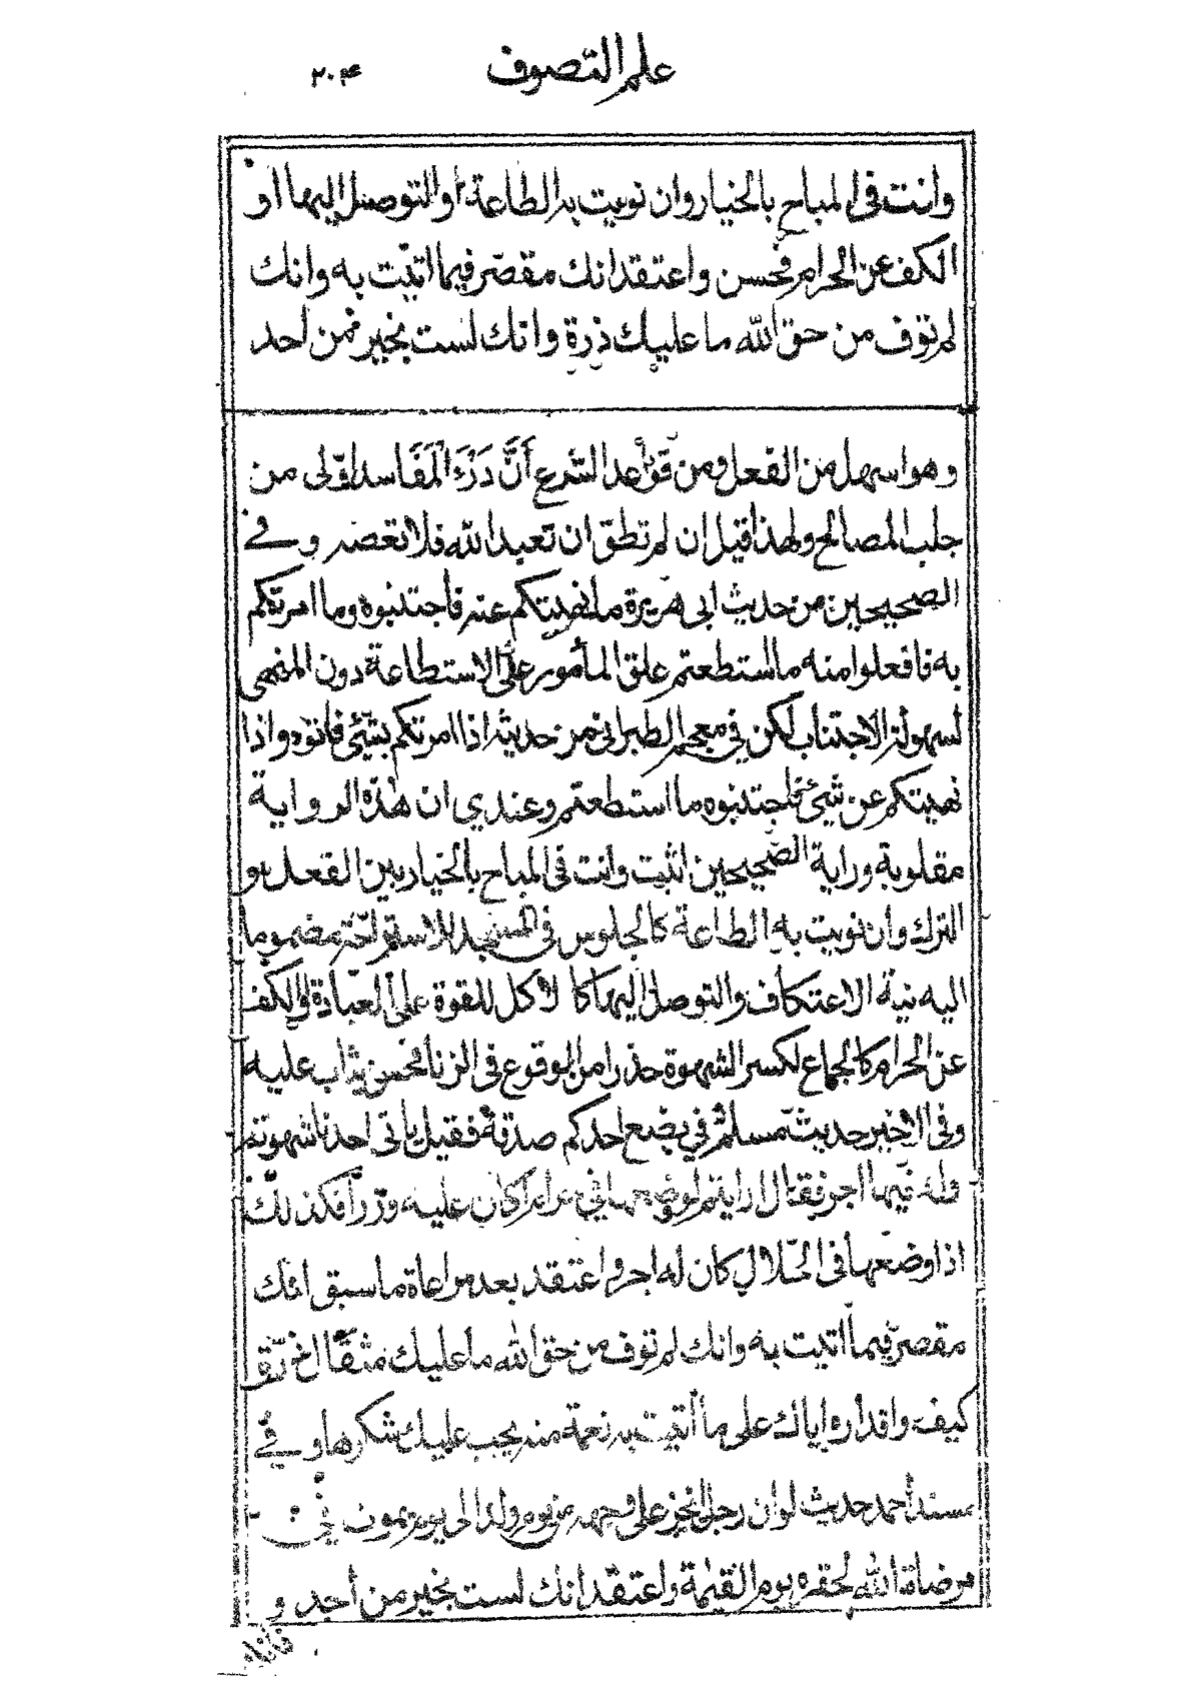 علم التصوف
٢٠٤
وانت فى المباح بالخيار وان نويت به الطاعة او التوصل اليها او
الكف عن الحرام فحسن واعتقد انك مقصر فيما اتيت به وانك
لم توف من حق الله ما عليك ذرة وانك لست بخير من احد
وهو اسهل من الفعل ومن قواعد الشرع أَنَّ دَرْءَ الْمَفَاسد اولى من
جلب المصالح ولهذا قيل إن لم تطق ان تعبد الله فلا تعصه وفے
الصحيحين من حديث ابى هريرة ما نهيتكم عنه فاجتنبوه وما امرتكم
به فافعلوا منه ما استطعتم علق المأمور على الاستطاعة دون المنهى
لسهولة الاجتناب لكن في معجم الطبرانى من حديثه اذا امرتكم بشئ فاتوه واذا
نهيتكم عن شئ فاجتنبوه ما استطعتم وعندي ان هذه الرواية
مقلوبة ورواية الصحيحين اثبت وانت فى المباح بالخيار بين الفعل و
الترك وان نويت به الطاعة كالجلوس فى المسجد للاستراحة مضموما
اليه نية الاعتكاف والتوصل اليها كالاكل للقوة على العبادة او الكف
عن الحرام كالجماع لكسر الشهوة حذرا من الوقوع فى الزنا فحسن يثاب عليه
وفى الاخير حديث مسلم في بضع احدكم صدقة فقيل ياتى احدنا شهوته
وله فيها اجر فقال ارايتم لو وضعها في حرام اكان عليه وزر فكذلك
اذا وضعها فى الحلال كان له اجر واعتقد بعد مراعاة ما سبق انك
مقصر فيما اتيت به وانك لم توف من حق الله ما عليك مثقال ذرة
كيف واقداره اياك على ما اتيت به نعمة منه يجب عليك شكرها وفے
مسند احمد حديث لو ان رجلا يخر على وجهه من يوم ولد الى يوم يموت في
مرضاة الله لحقره يوم القيمة واعتقد انك لست بخير من أحد و